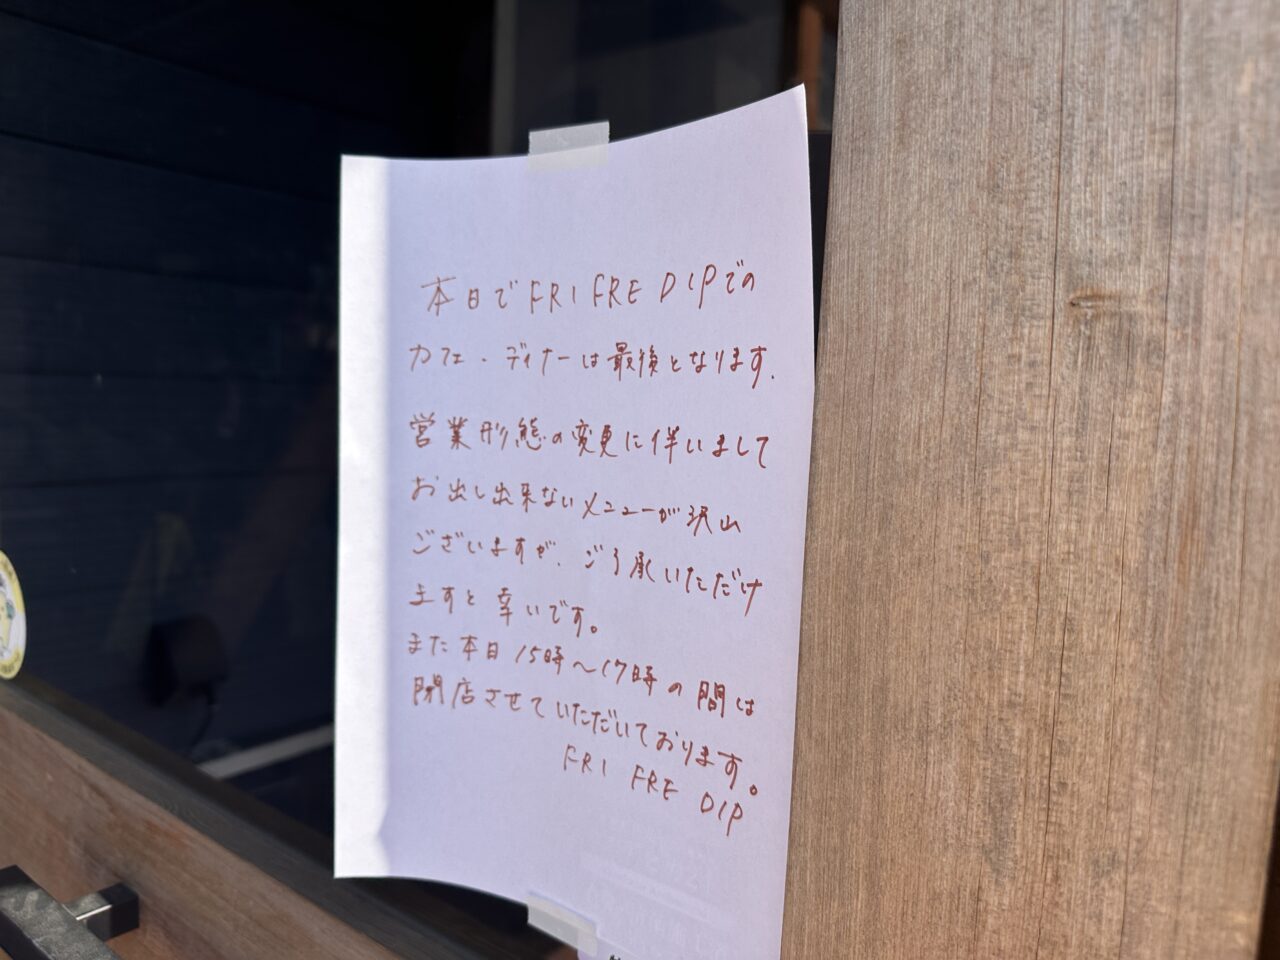 本日でFRI FRE DIPでの
カフェ・ディナーは最後となります。
営業形態の変更に伴いまして
お出し出来ないメニューが沢山
ございますが、ご了承いただけ
ますと幸いです。
また本日15時〜17時の間は
閉店させていただいております。
FRI FRE DIP